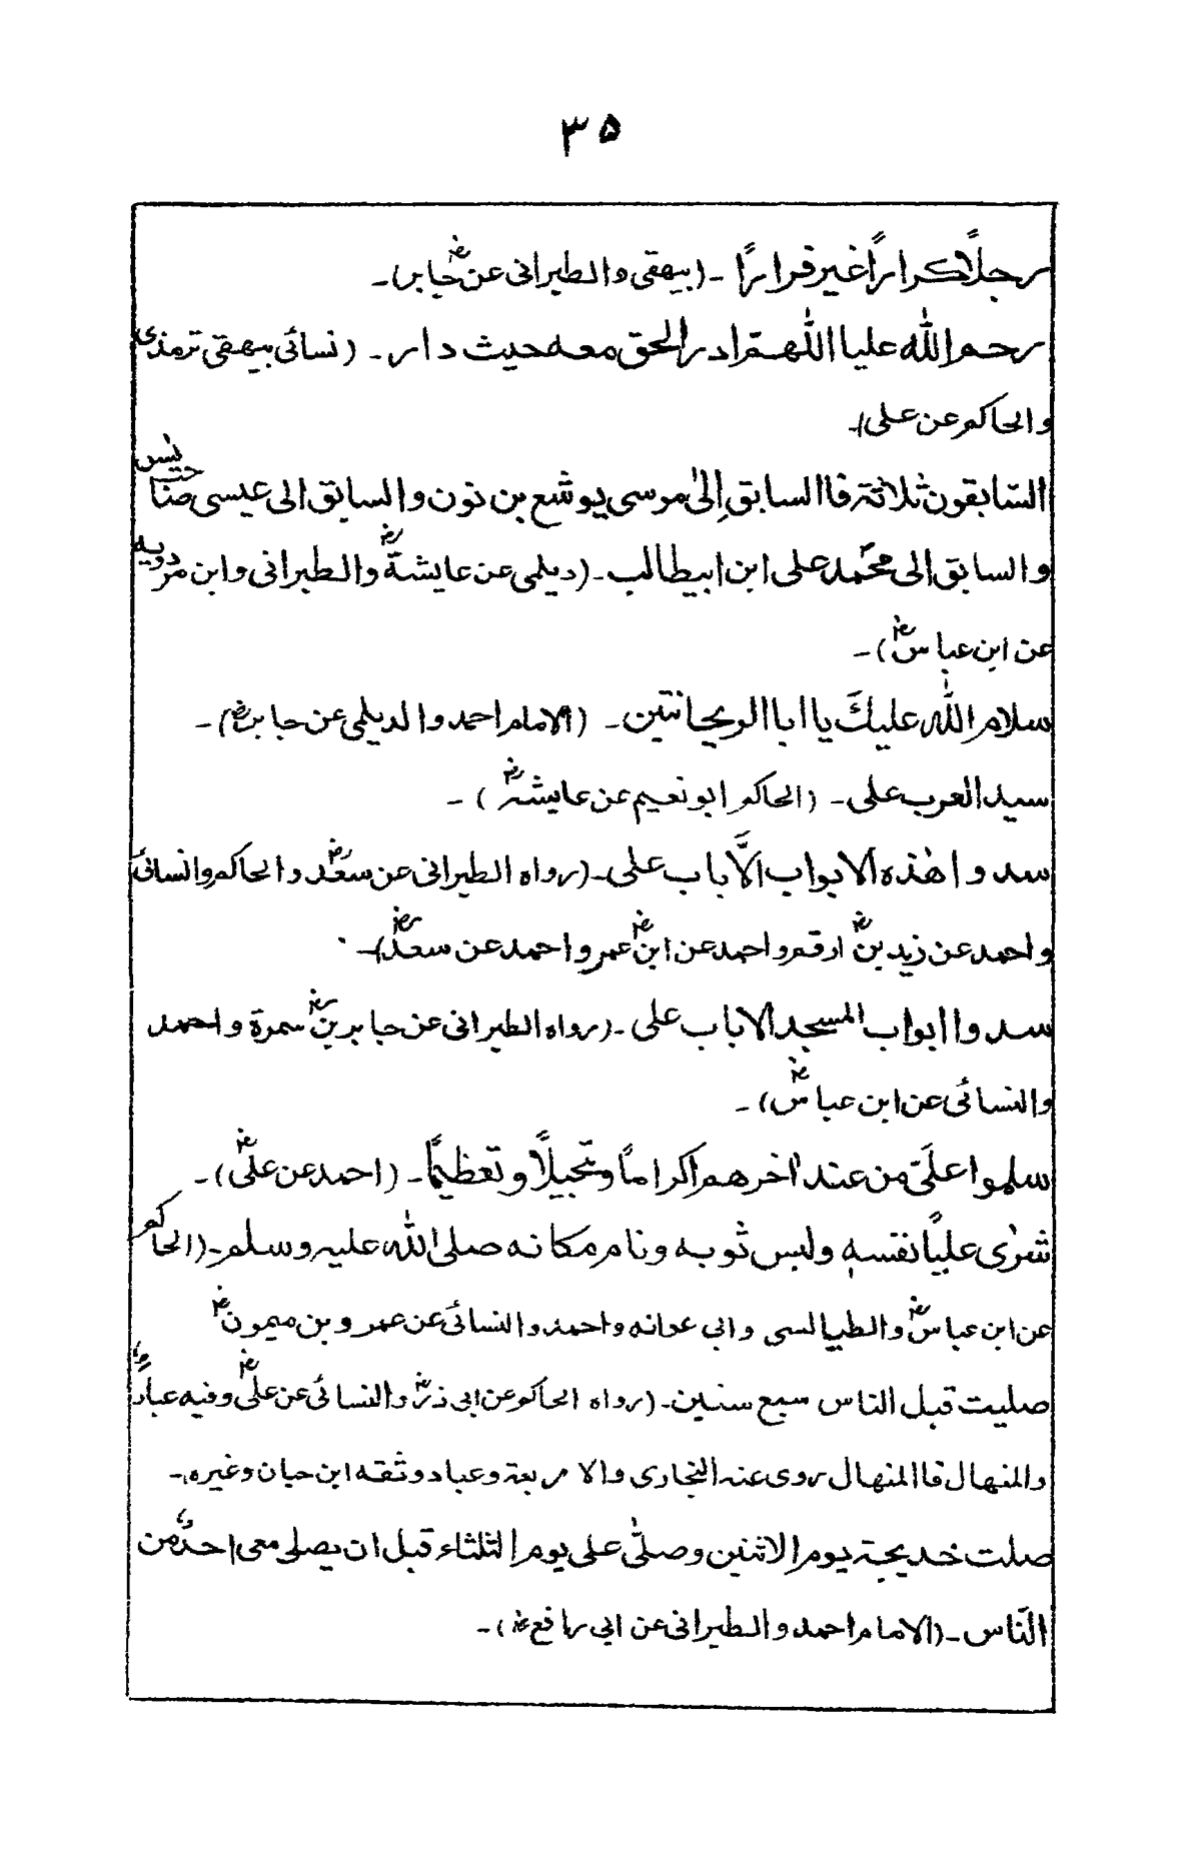 ۳۵
رجلًا کرارًا غیر فرارًا ۔ (بیهقی والطبرانی عن جابرؓ)۔
رحم اللّٰه علیا اللّٰهمّ ادر الحق معه حیث دار ۔ (نسائی بیهقی ترمذی
والحاکم عن علی)۔
السّابقون ثلاثة فاالسابق اِلیٰ موسی یوشع بن نون والسابق الی عیسی صاحب یٰس
والسابق الی محمّد علی ابن ابیطالب۔ (دیلمی عن عایشةؓ والطبرانی وابن مردویه
عن ابن عباسؓ)۔
سلام اللّٰه علیكَ یا ابا الریحانتین۔ (الامام احمد والدیلمی عن جابرؓ)۔
سید العرب علی۔ (الحاکم ابونعیم عن عایشهؓ)۔
سدوا هٰذه الابواب الّا باب علی۔ (رواه الطبرانی عن سعدؓ والحاکم والنسائی
واحمد عن زید بنؓ ارقم واحمد عن ابنؓ عمر واحمد عن سعدؓ)۔
سدوا ابواب المسجد الا باب علی ۔ (رواه الطبرانی عن جابر بنؓ سمرة واحمد
والنسائی عن ابن عباسؓ)۔
سلموا علَیّ من عند اٰخرهم اکرامًا وتجبیلًا وتعظیمًا۔ (احمد عن علیؓ)۔
شرٰی علیًا نفسهٖ ولبس ثوبه ونام مکانه صلی اللّٰه علیه وسلم۔ (الحاکم
عن ابن عباسؓ والطیالسی وابی عوانه واحمد والنسائی عن عمرو بن میمونؓ
صلیت قبل الناس سبع سنین۔ (رواه الحاکم عن ابی ذرؓ والنسائی عن علیؓ وفیه عبادٌ
والمنهال فاالمنهال روی عنه البخاری والاربعة وعباد وثقه ابن حبان وغیره۔
صلت خدیجة یوم الاثنین وصلّٰی علی یوم الثلثاء قبل ان یصلی معی احدٌ من
النّاس۔ (الامام احمد والطبرانی عن ابی رافعؓ)۔